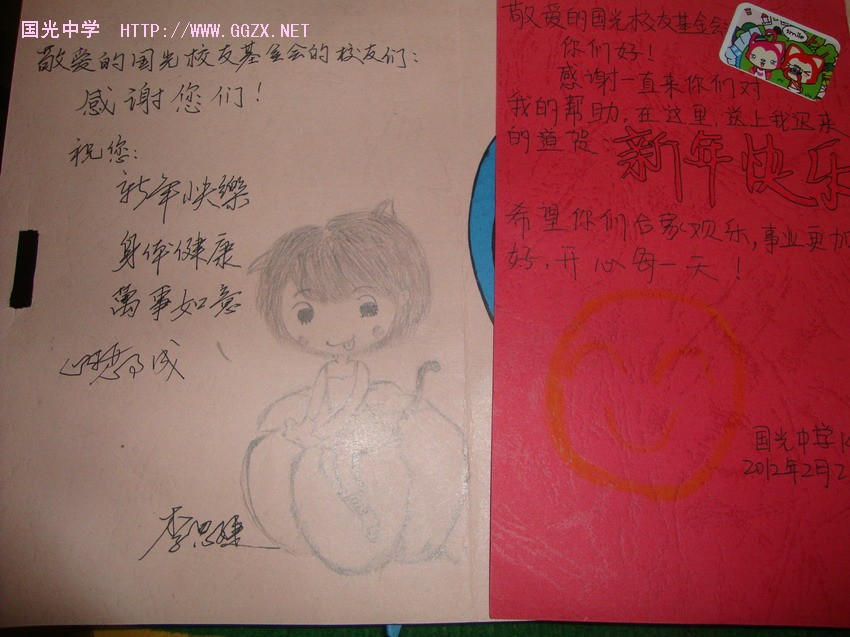 国光中学 HTTP://WWW.GGZX.NET
敬爱的国光校友基金会的校友们：
感谢您们！
祝您：
新年快樂
身体健康
萬事如意
心想事成
敬爱的国光校友基金会：
你们好！
感谢一直来你们对
我的帮助，在这里，送上我迟来
的道贺：新年快乐
希望你们合家欢乐，事业更加
好，开心每一天！
国光中学
2012年2月2